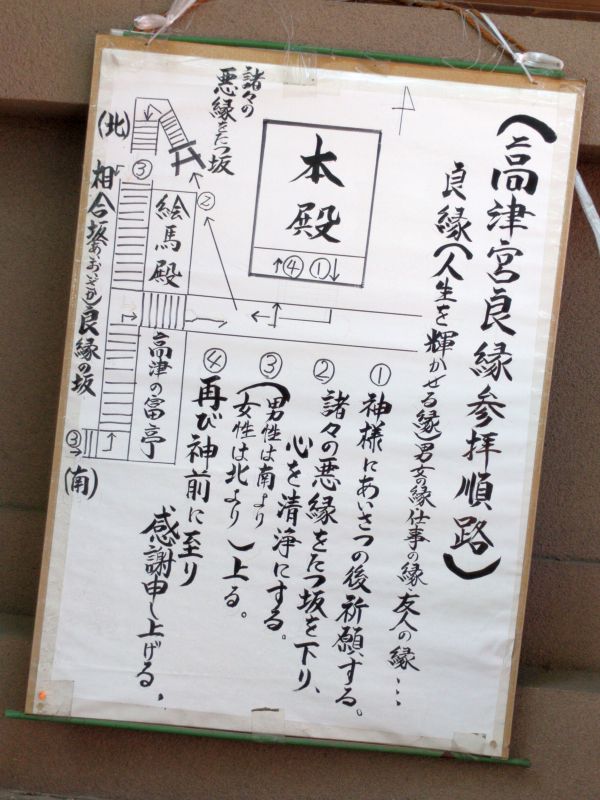 (高津宮良縁参拝順路)
良縁(人生を輝かせる縁)男女の縁仕事の縁友人の縁…
①神様にあいさつの後祈願する。
②諸々の悪縁をたつ坂を下り、
心を清浄にする。
③(男性は南より
女性は北より)上る。
④再び神前に至り
感謝申し上げる。
本殿
↑④①↓
諸々の
悪縁をたつ坂
②
(北)
③
絵馬殿
相合坂(あいおいざか)良縁の坂
高津の富亭
③
(南)